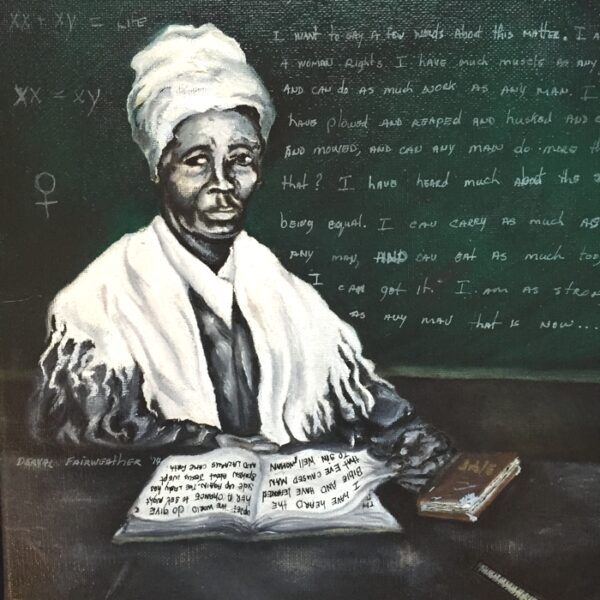 XX + XY = LIFE
XX = XY
♀
I WANT to SAY A few WORDS About this MAtteR. I A
A WOMAN RIGHTS. I HAVE MUCH MUSCLE AS ANY
AND CAN DO AS MUCH WORK AS ANY MAN. I
HAVE PLOWED AND REAPED AND HUSKED AND
AND MOWED, AND CAN ANY MAN DO MORE
that? I HAVE HEARD MUCH About the
being equal. I CAN CARRY AS MUCH AS
ANY MAN, AND CAN EAT AS MUCH too,
I CAN get it." I AM AS STRONG
AS ANY MAN that is NOW...
I HAVE HEARD the
BIBLE AND HAVE LEARNED
that EVE CAUSED MAN
TO SIN. WELL, WOMAN
UPSET the WORLD DO GIVE
HER A CHANCE to SET RIGHT
SIDE UP AGAIN. THE LADY HAS
SPOKEN About JESUS WEPT
AND LAZARUS CAME FORTH
BIBLE
DERVAL FAIRWEATHER '19